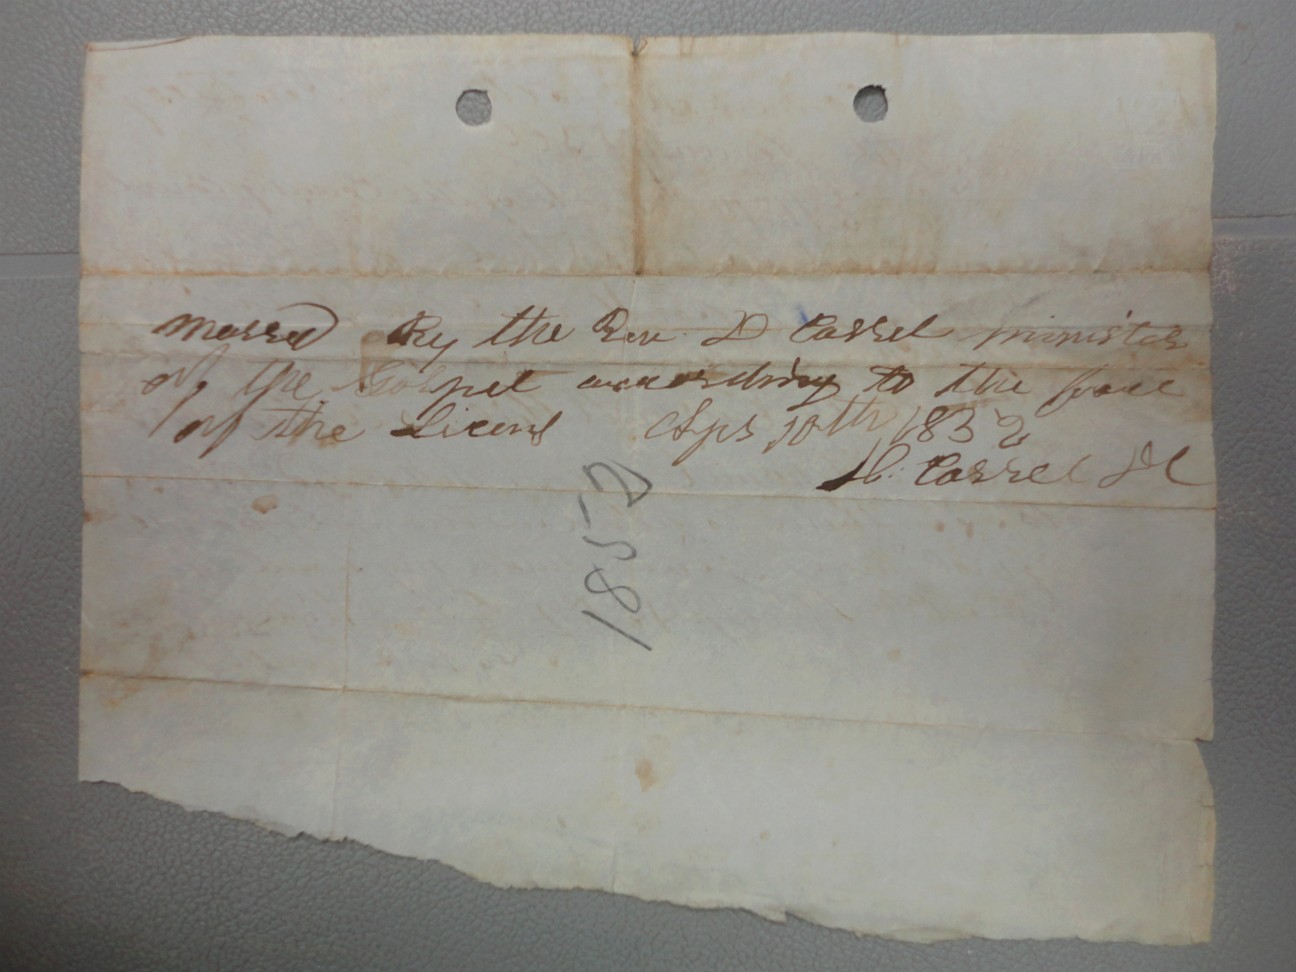 Marred By the Rev. D Cassel minister
of the Gospel according to the face
of the Licens Aps 10th 1852
D. Cassel
1852